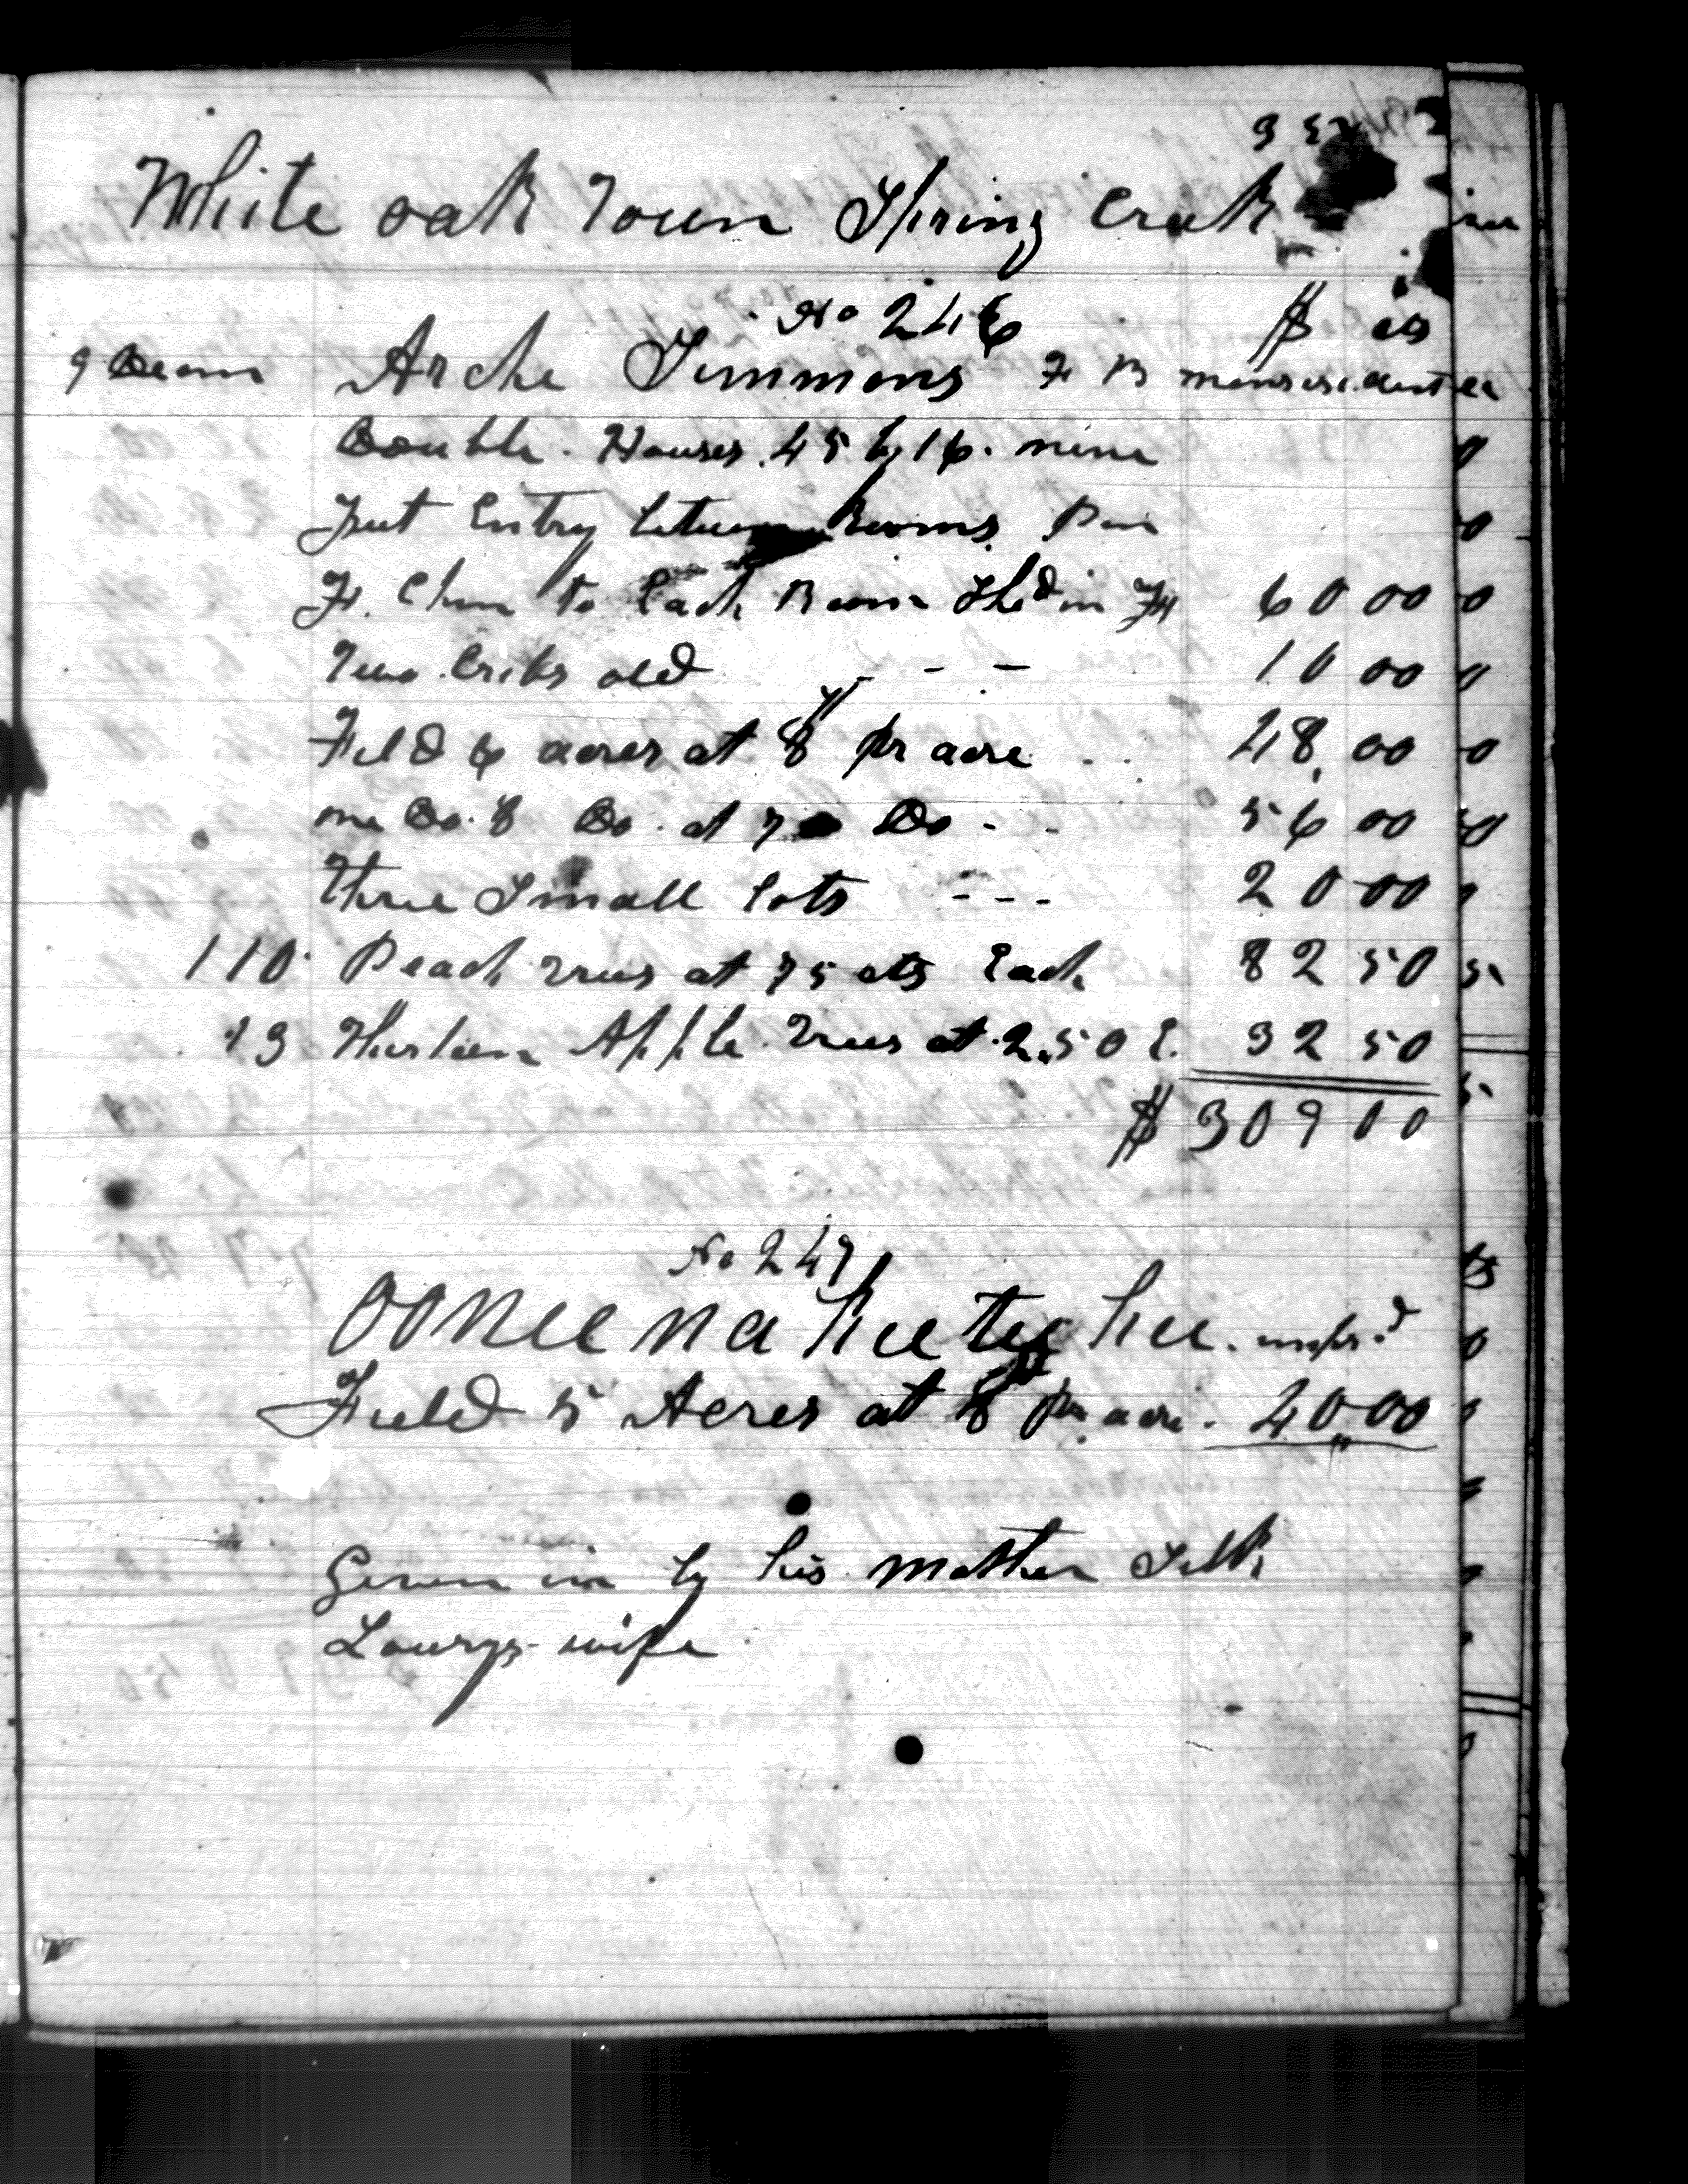 White oak Town Spring Creek
No 246 $ cts
Arche Simmons F B
Double Houses 45 by 16. nine
feet Entry between Rooms
F. Chim to Each Room Shed in Ft 60 00
Two Cribs old - - 10 00
Field 6 acres at 8$ pr acre 48,00
one Do. 8 Do. at 7 Do - - 56 00
three Small lots - - - 20 00
110 Peach Trees at 75 cts Each 82 50
13 Thirteen Apple Trees at 2.50 E. 32 50
$ 309 00
No 247
OO Nee na kee tey hee.
Field 5 Acres at 8$ pr acre. 40 00
Given in by his mother
Lowrys wife